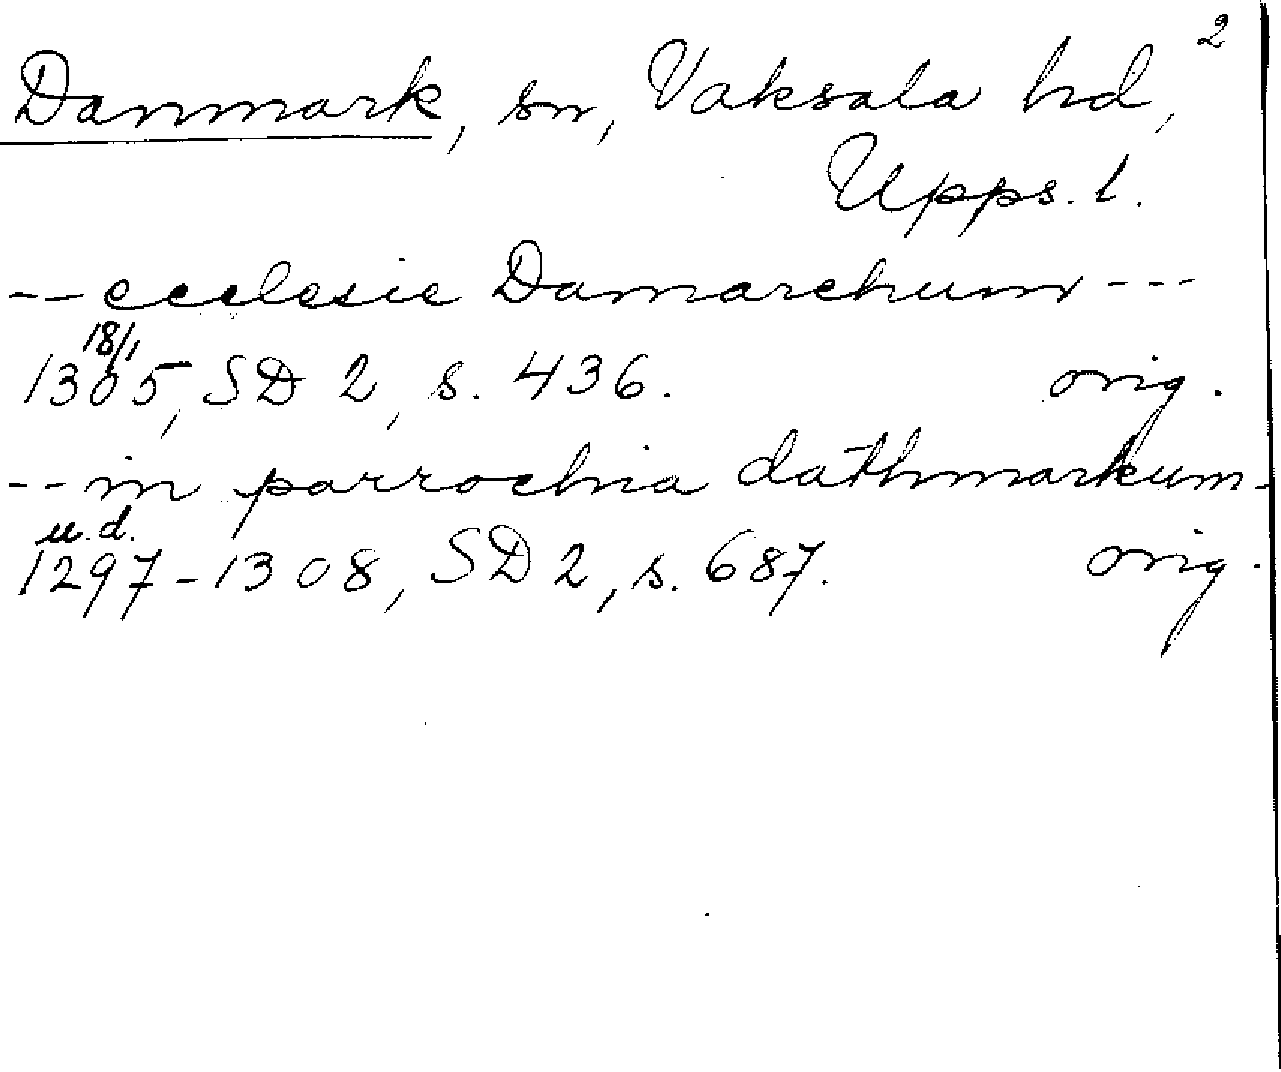 2
Danmark, sn, Vaksala hd,
Upps. l.
-- ecclesie Damarchum ---
18/1
1305, SD 2, s. 436. orig.
-- in parrochia dathmarkum -
u. d.
1297-1308, SD 2, s. 687. orig.